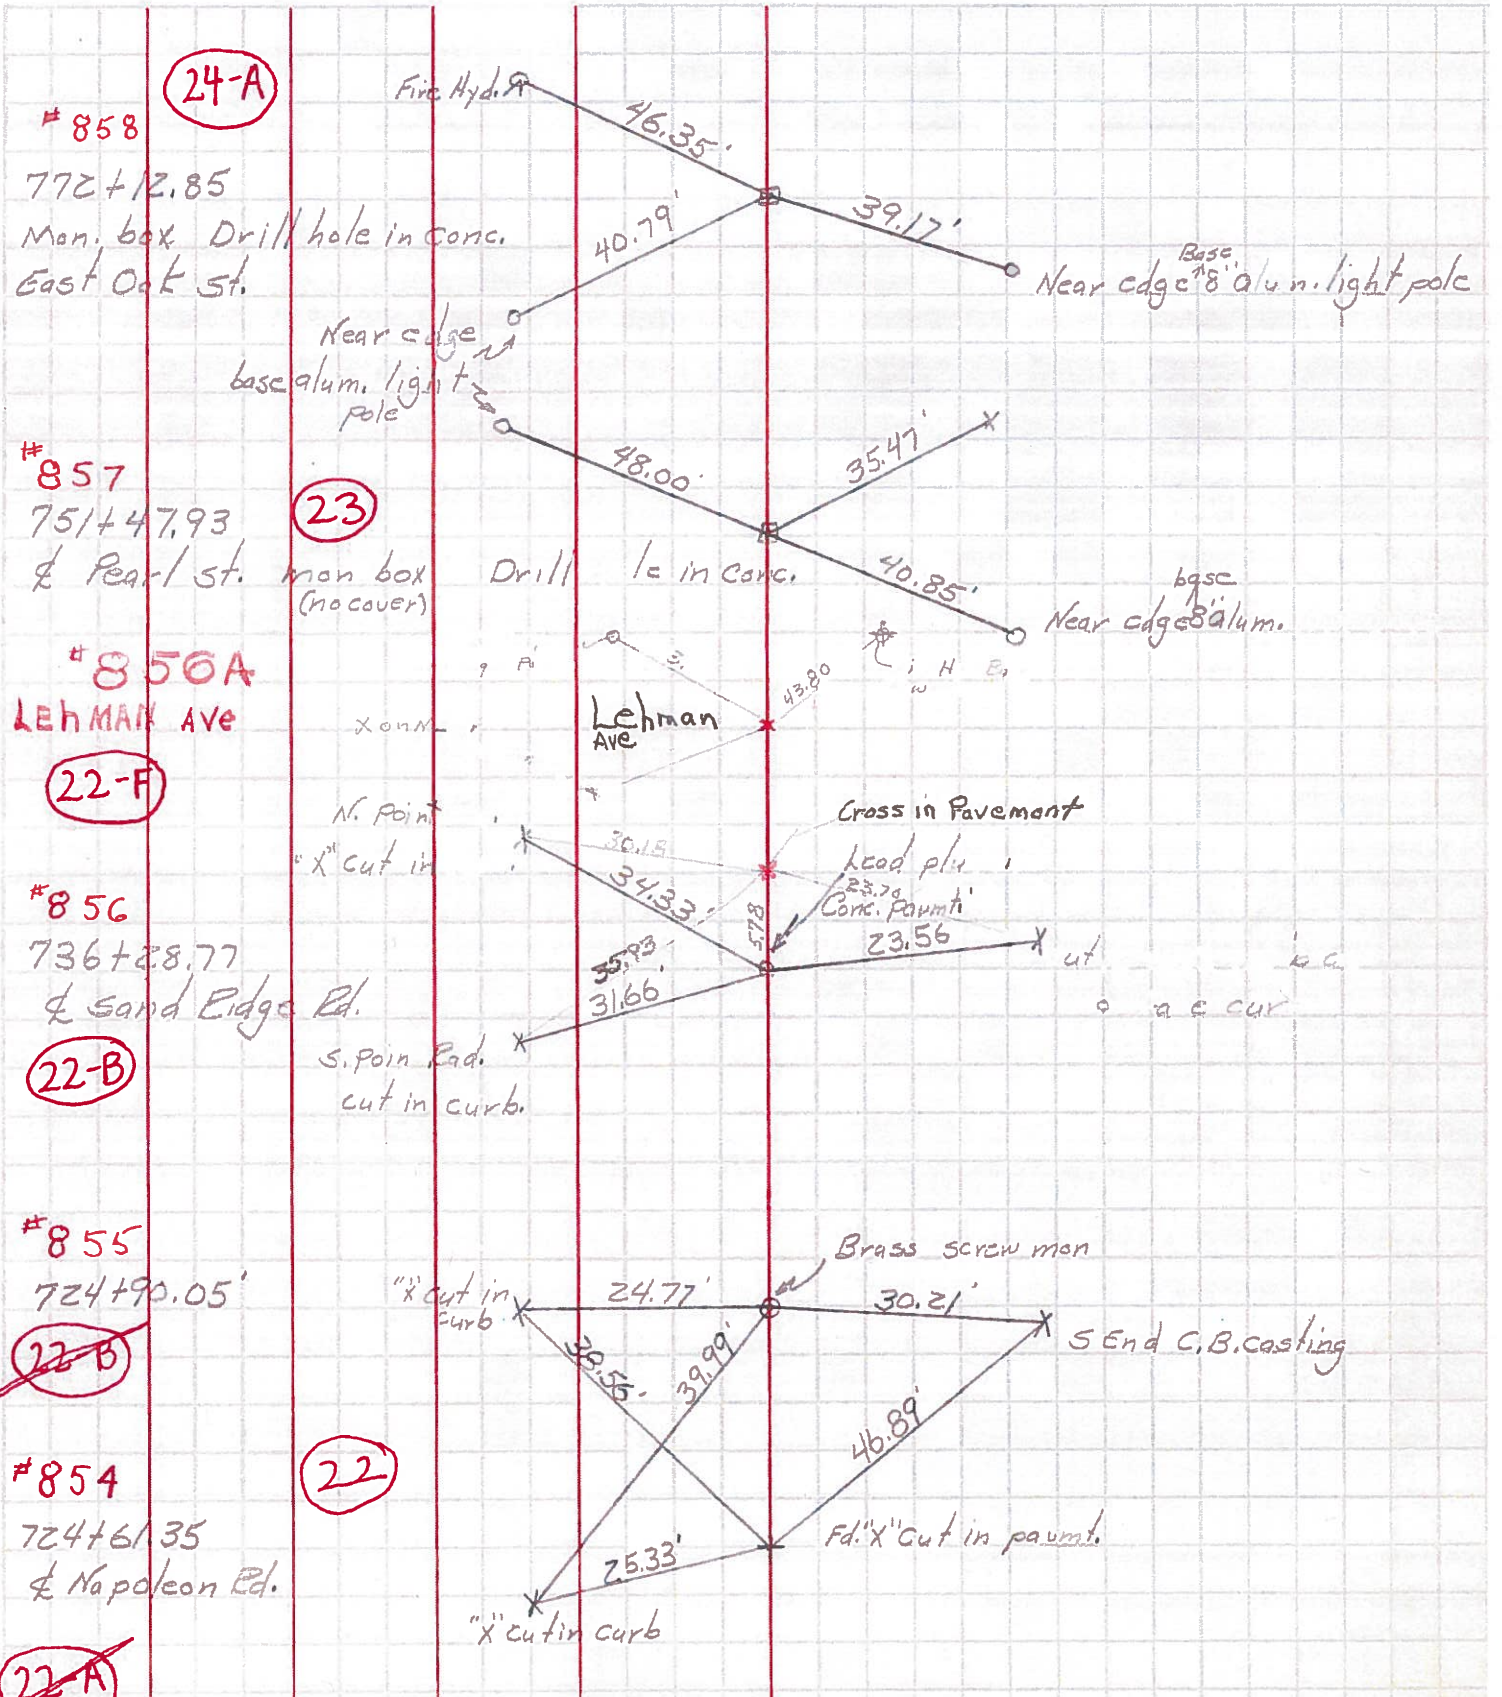 24-A
#858
772+12.85
Mon. box Drill hole in conc.
East Oak St.
Fire Hyd.
46.35'
40.79'
39.17'
Base
Near edge 8" alum. light pole
Near edge
base alum. light
pole
#857
751+47.93
23
℄ Pearl St. mon box Drill in Conc.
(no cover)
48.00'
35.47'
40.85'
base
Near edge 8" alum.
#856A
LEhMAN AvE
22-F
Lehman
AVE
43.80
N. Point
"X" cut in
30.15
34.33'
Cross in Pavement
Lead
23.70
Conc. Pavmt.
5.78
23.56
35.93
31.66'
#856
736+28.77
℄ Sand Ridge Rd.
22-B
S. Poin Rad.
cut in curb.
#855
724+90.05'
22-B
"X" cut in
curb
24.77'
Brass screw mon
30.21'
S End C.B. casting
38.55'
39.99'
46.89'
#854
22
724+61.35
℄ Napoleon Rd.
Fd. "X" Cut in pavmt.
25.33'
"X" cut in curb
22-A